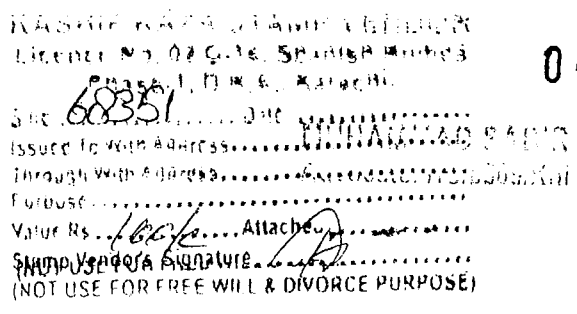 KASHIF RAZA STAMP VENDOR
Licence No. 02 G-16, Spanish Homes
Phase 1, D.H.A., Karachi. 0
S.No. 68351 Date
Issued To With Address MUHAMMAD
Through With Address
Purpose
Value Rs. 100/- Attached
Stamp Vendors Signature
(NOT USE FOR FREE WILL & DIVORCE PURPOSE)